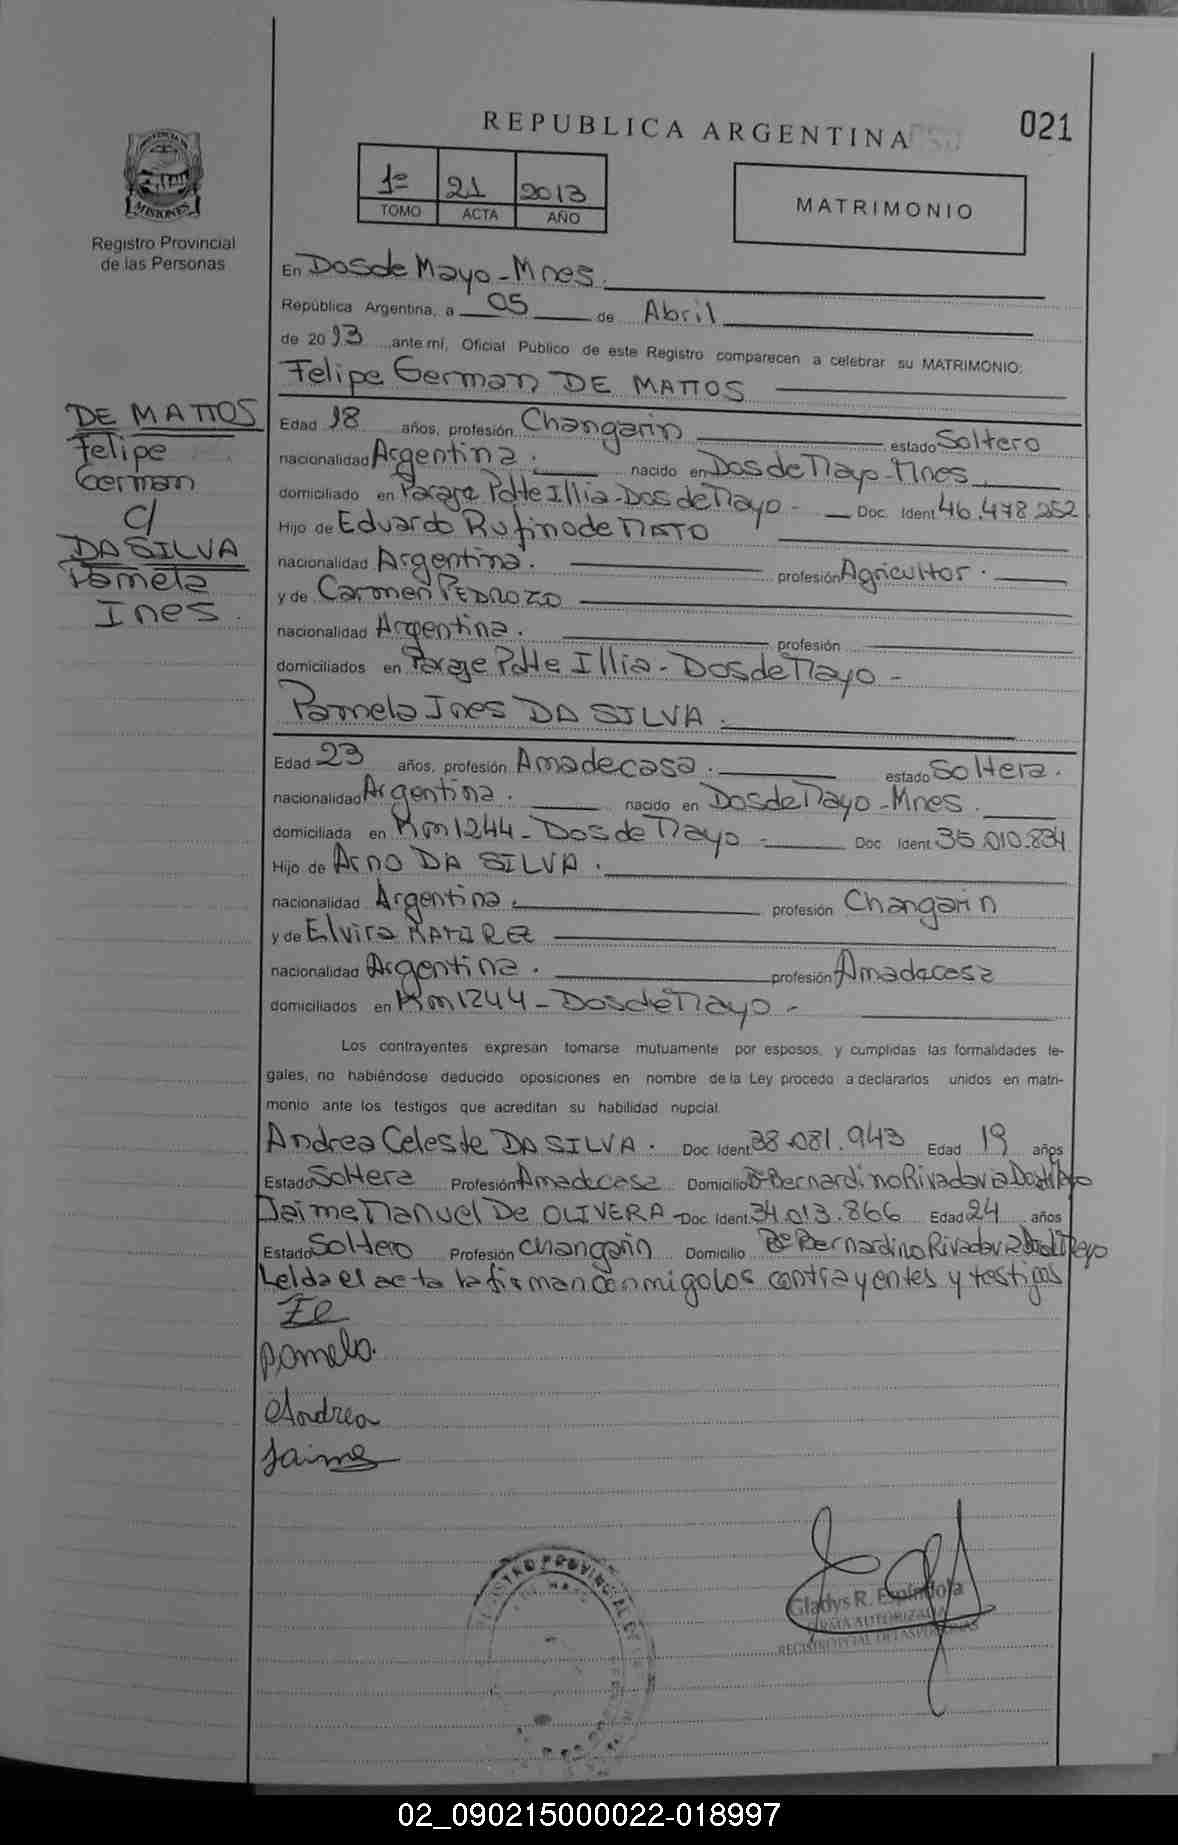 REPUBLICA ARGENTINA
021
1º 21 2013
TOMO ACTA AÑO
MATRIMONIO
MISIONES
Registro Provincial
de las Personas
En Dos de Mayo - Mnes.
República Argentina, a 05 de Abril
de 2013 ante mí, Oficial Publico de este Registro comparecen a celebrar su MATRIMONIO:
Felipe German DE MATTOS
DE MATTOS
Felipe
German
c/
DA SILVA
Pamela
Ines.
Edad 18 años, profesión Changarin estado Soltero
nacionalidad Argentina. nacido en Dos de Mayo - Mnes.
domiciliado en Paraje Pdte Illia - Dos de Mayo - Doc. Ident. 46.478.252
Hijo de Eduardo Rufino de MATO
nacionalidad Argentina. profesión Agricultor.
y de Carmen PEDROZO
nacionalidad Argentina. profesión
domiciliados en Paraje Pdte Illia - Dos de Mayo -
Pamela Ines DA SILVA.
Edad 23 años, profesión Ama de casa. estado Soltera.
nacionalidad Argentina. nacido en Dos de Mayo - Mnes.
domiciliada en Km 1244 - Dos de Mayo - Doc. Ident. 35.010.834
Hijo de Arno DA SILVA.
nacionalidad Argentina. profesión Changarin
y de Elvira RAMIREZ
nacionalidad Argentina. profesión Ama de casa
domiciliados en Km 1244 - Dos de Mayo -
Los contrayentes expresan tomarse mutuamente por esposos, y cumplidas las formalidades le-
gales, no habiéndose deducido oposiciones en nombre de la Ley procedo a declararlos unidos en matri-
monio ante los testigos que acreditan su habilidad nupcial.
Andrea Celeste DA SILVA. Doc. Ident. 38.081.943 Edad 19 años
Estado Soltera Profesión Ama de casa Domicilio Bº Bernardino Rivadavia Dos de Mayo
Jaime Manuel De OLIVERA - Doc. Ident. 34.013.866 Edad 24 años
Estado Soltero Profesión Changarin Domicilio Bº Bernardino Rivadavia Dos de Mayo
Leida el acta la firman conmigo los contrayentes y testigos
Fe
Pamela.
Andrea
Jaime
Gladys R. Espíndola
FIRMA AUTORIZADA
REGISTRO PCIAL. DE LAS PERSONAS
REGISTRO PROVINCIAL DE
02_090215000022-018997